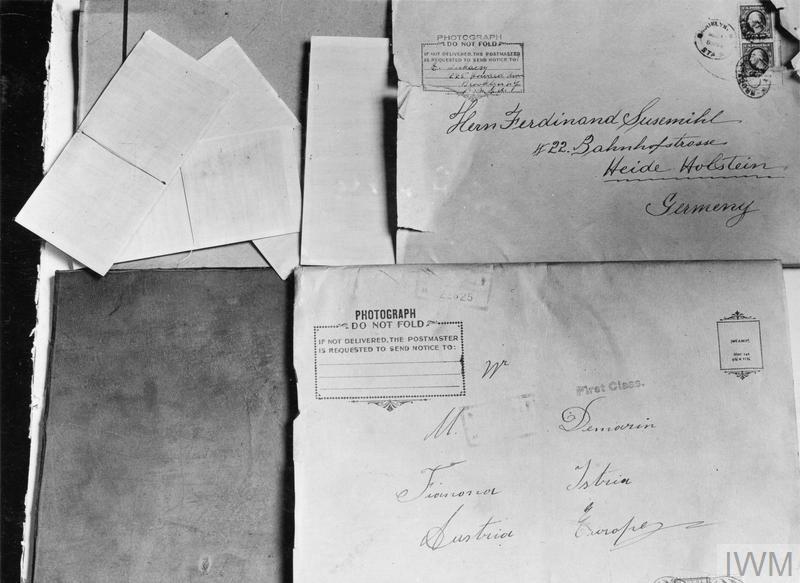 PHOTOGRAPH
DO NOT FOLD
IF NOT DELIVERED, THE POSTMASTER
IS REQUESTED TO SEND NOTICE TO:
Brooklyn
Herrn Ferdinand Susemihl
# 22. Bahnhofstrasse
Heide Holstein
Germeny
PHOTOGRAPH
DO NOT FOLD
IF NOT DELIVERED, THE POSTMASTER
IS REQUESTED TO SEND NOTICE TO:
Mr
First Class.
M. Demarin
Fianona Istria
Austria Europe
IWM